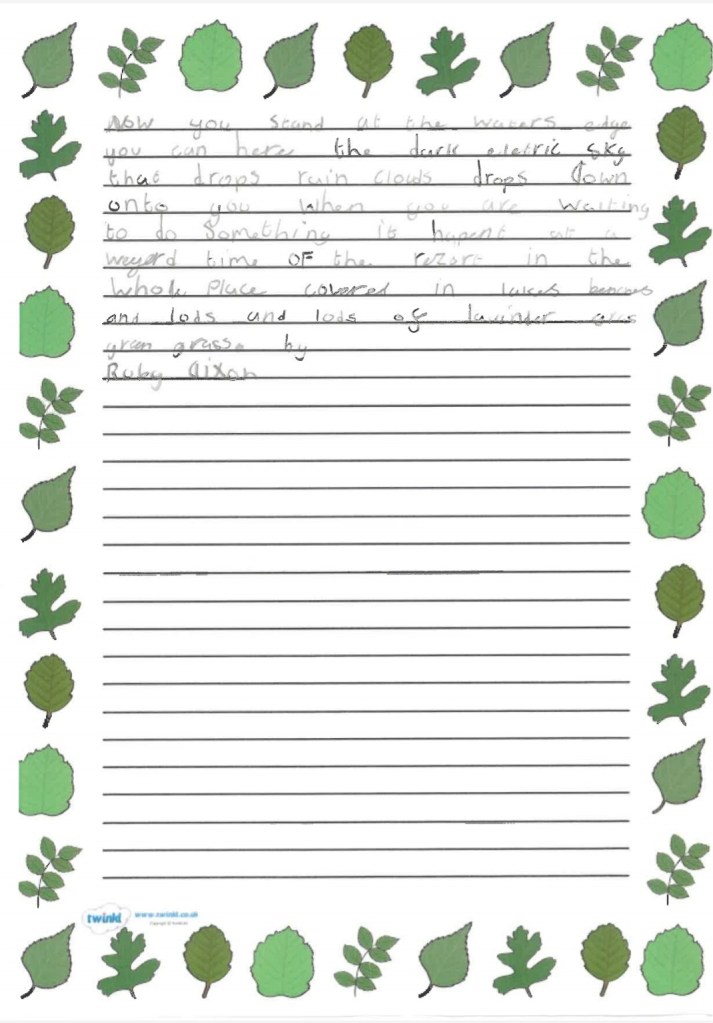 Now you stand at the waters edge
you can here the dark eletric sky
that drops rain clouds drops down
onto you when you are waiting
to do something it hapent at a
weyerd time OF the rezort in the
whole place covered in lakes
and lods and lods of lavinder
gran grasse by
Ruby dixon
twinkl www.twinkl.co.uk